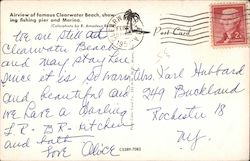 Airview of famous Clearwater Beach, show-
ing fishing pier and Marina.
(Colorphoto by R. Amodeo)
Post Card
We are still at
Clearwater Beach
and may stay here
since it is so warm
and beautiful and
we have a darling
L.R. - B.R. - Kitchen
and bath
Love Alice
Mrs. Karl Hubbard
249 Buckland
Rochester 18
N.Y.